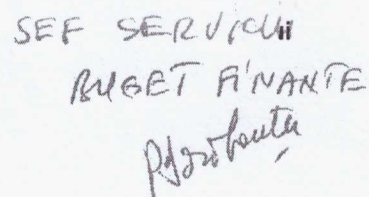 SEF SERVICIU
BUGET FINANTE